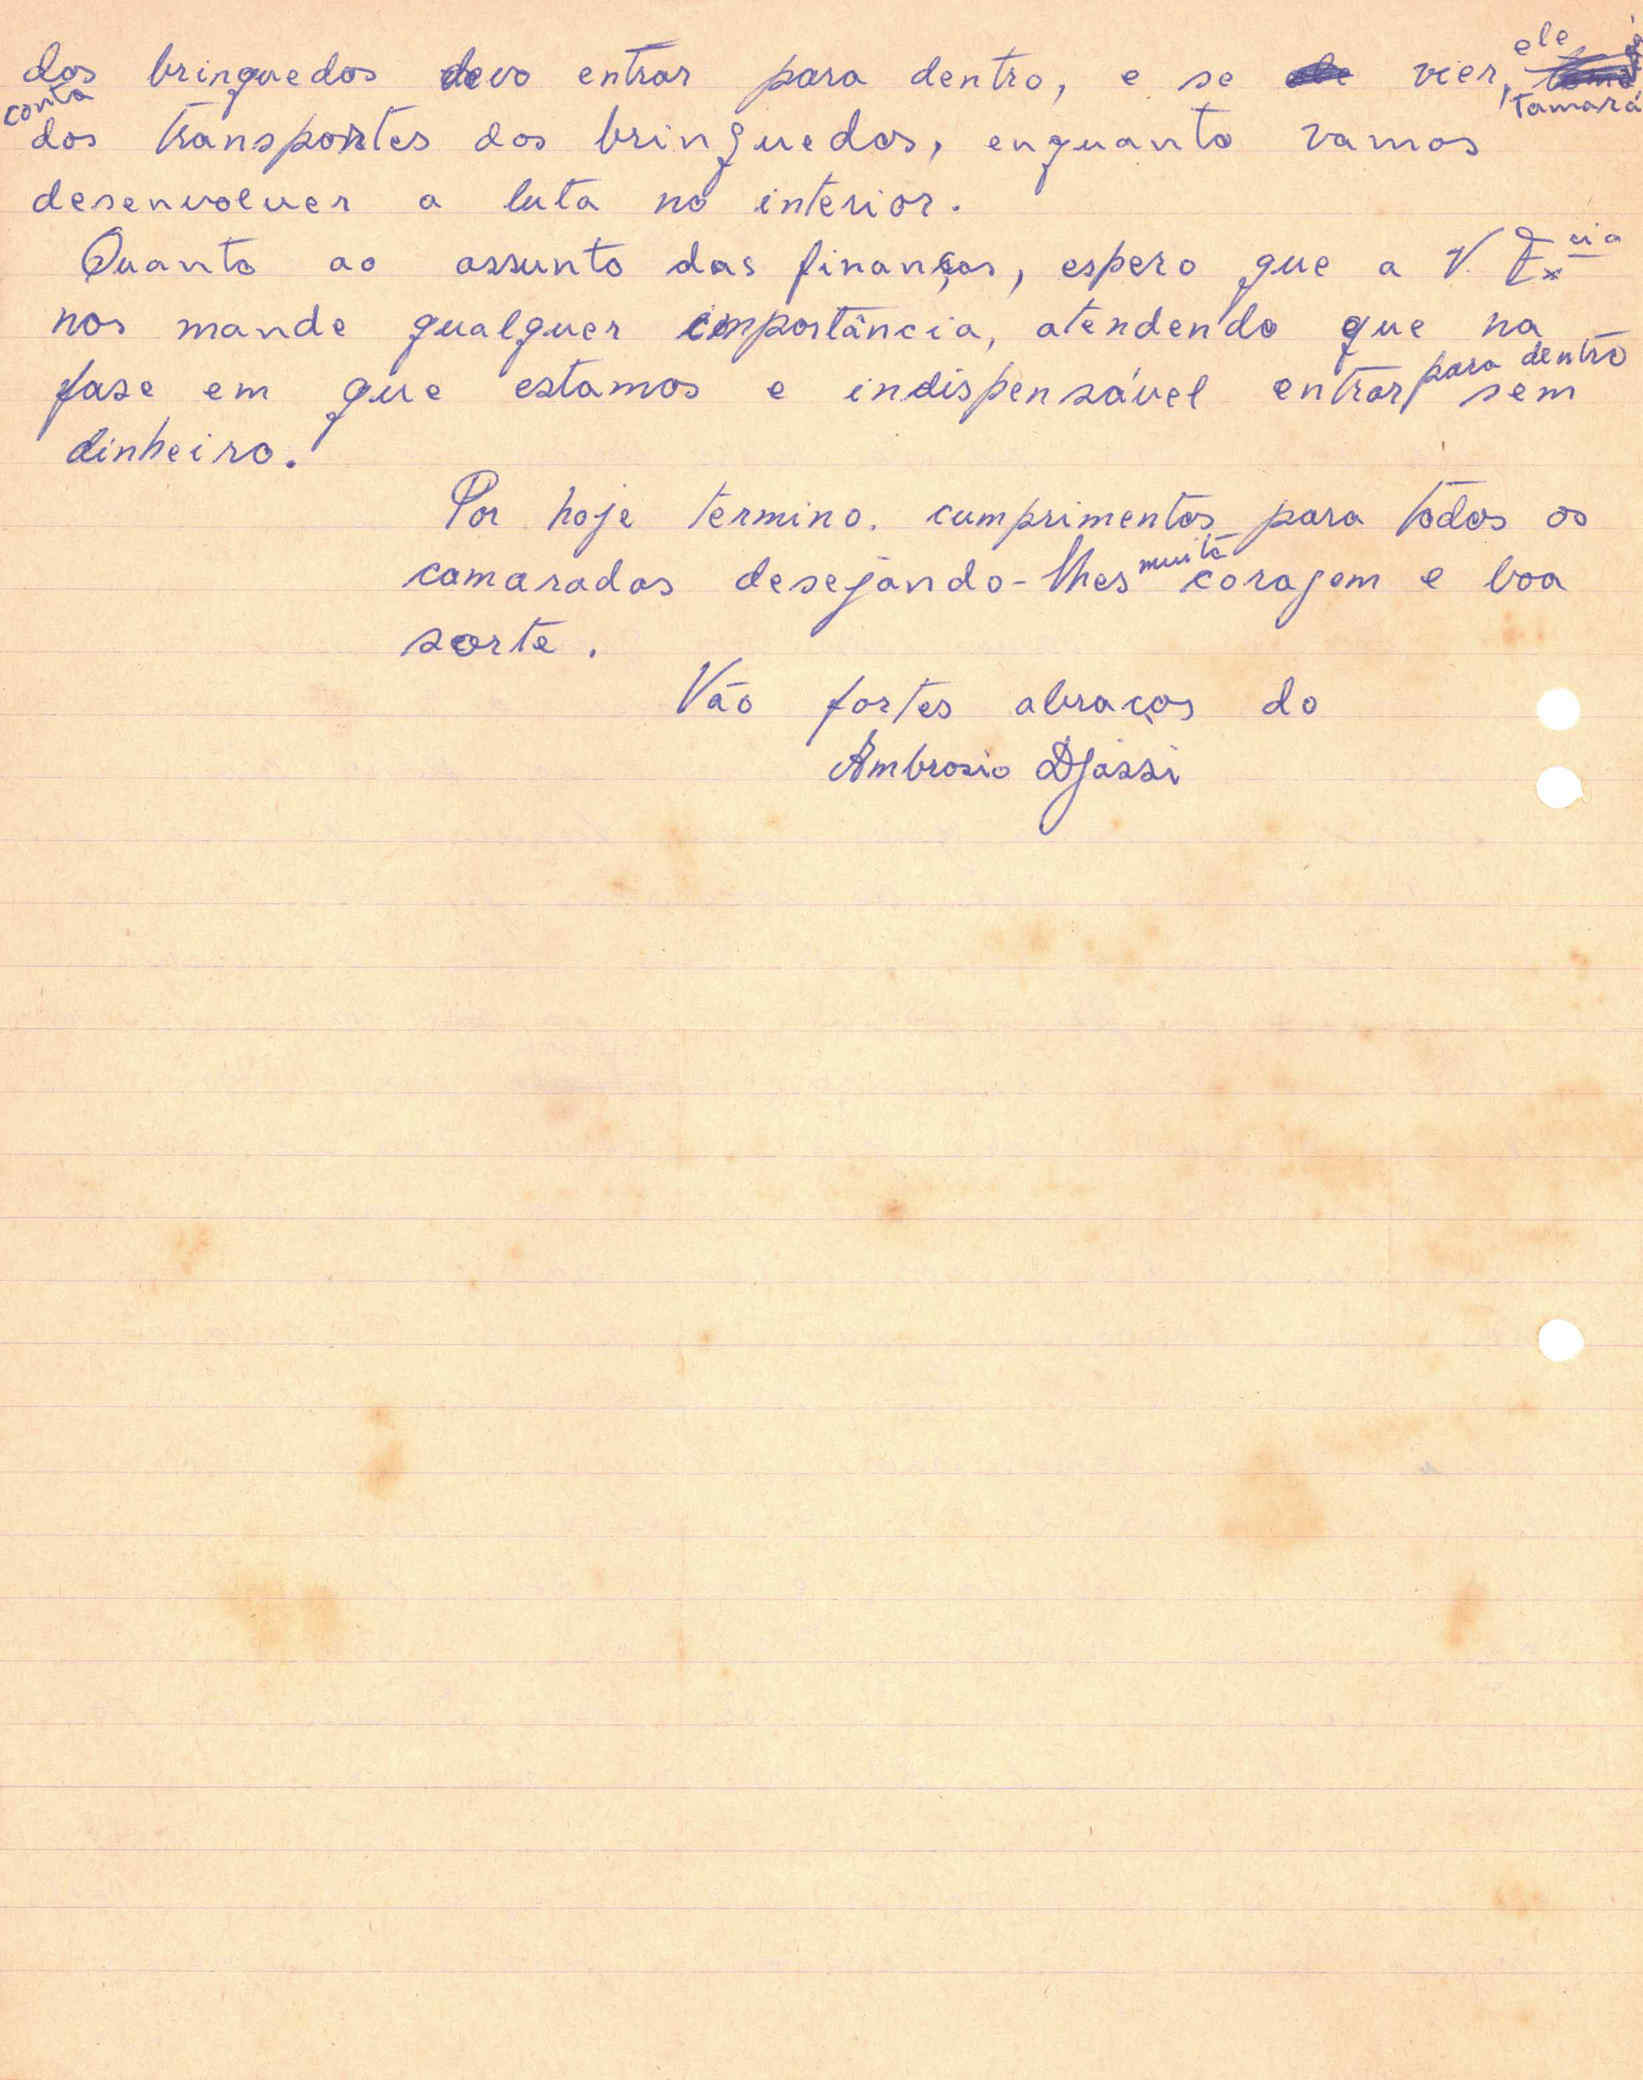 dos brinquedos devo entrar para dentro, e se vier, ele tomará conta
dos transportes dos brinquedos, enquanto vamos
desenvolver a luta no interior.
Quanto ao assunto das finanças, espero que a V. Excia
nos mande qualquer importância, atendendo que na
fase em que estamos e indispensável entrar para dentro sem
dinheiro.
Por hoje termino. cumprimentos para todos os
camaradas desejando-lhes muita coragem e boa
sorte.
Vão fortes abraços do
Ambrosio Djassi